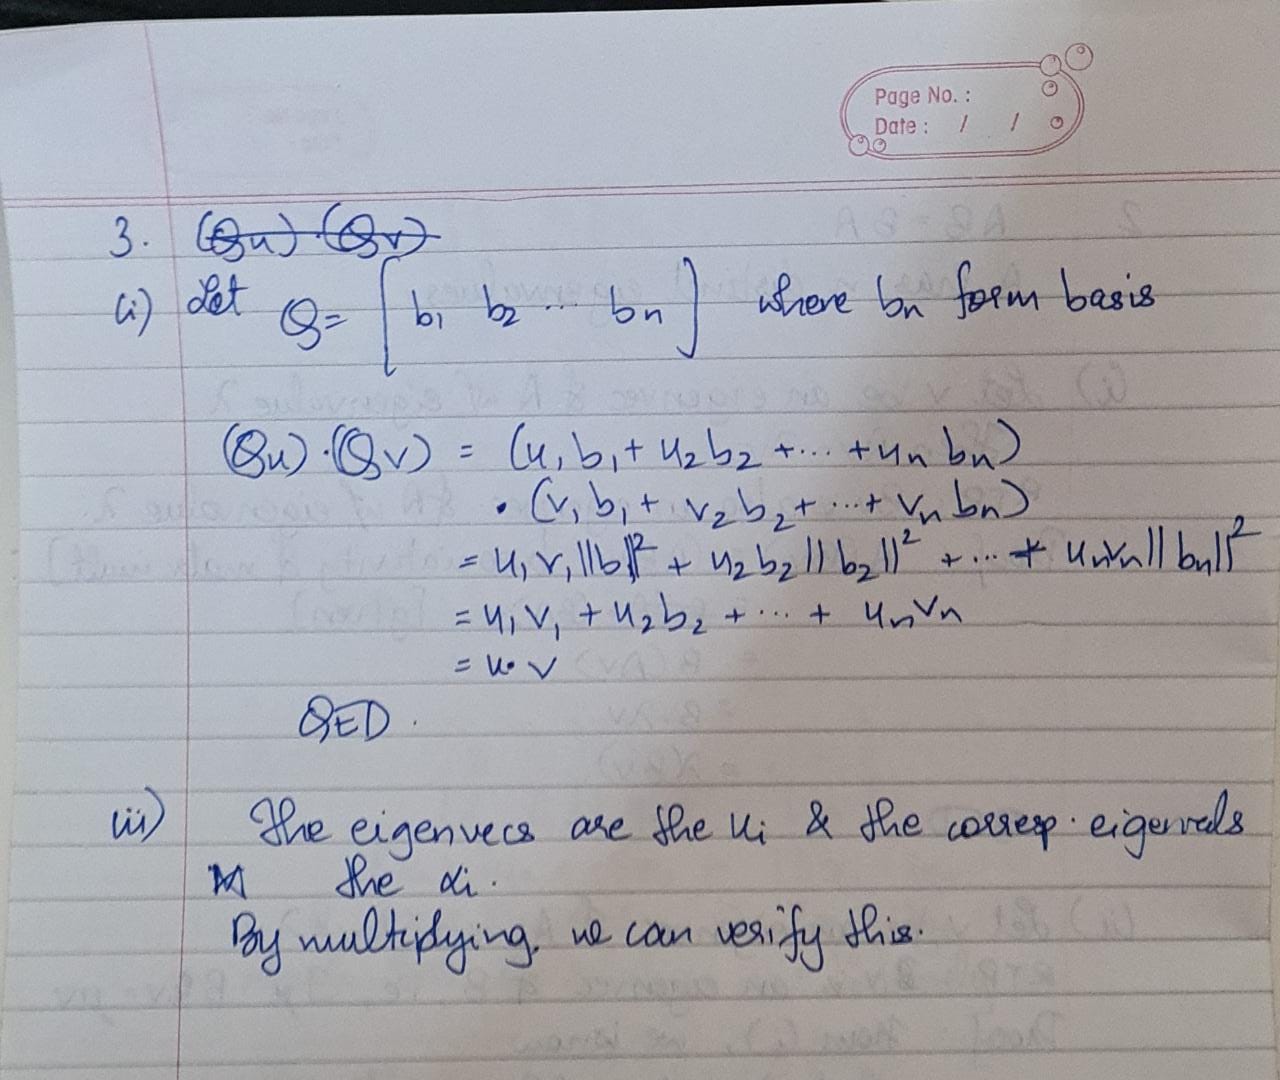 Page No. :
Date : / /
3. (Qu) · (Qv)
(i) Let Q = [ b₁ b₂ ... bn ] where bn form basis
(Qu) · (Qv) = (u₁b₁ + u₂b₂ + ... + un bn)
• (v₁b₁ + v₂b₂ + ... + vn bn)
= u₁v₁||b||² + u₂b₂||b₂||² + ... + unvn||bn||²
= u₁v₁ + u₂b₂ + ... + unvn
= u • v
QED .
iii) The eigenvecs are the ui & the corresp. eigenvals
the αi.
By multiplying, we can verify this.